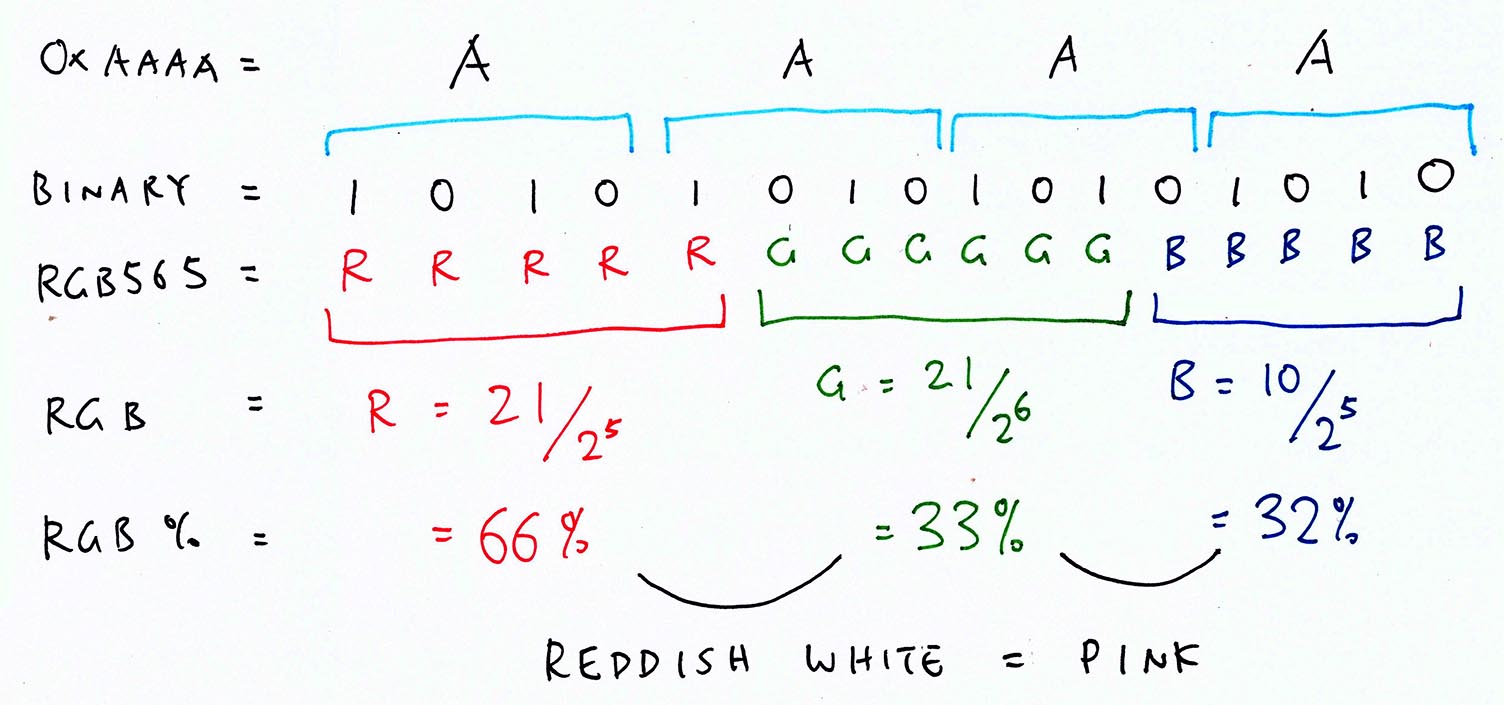 0x AAAA = A A A A
BINARY = 1 0 1 0 1 0 1 0 1 0 1 0 1 0 1 0
RGB565 = R R R R R G G G G G G B B B B B
RGB = R = 21/2⁵ G = 21/2⁶ B = 10/2⁵
RGB % = = 66% = 33% = 32%
REDDISH WHITE = PINK